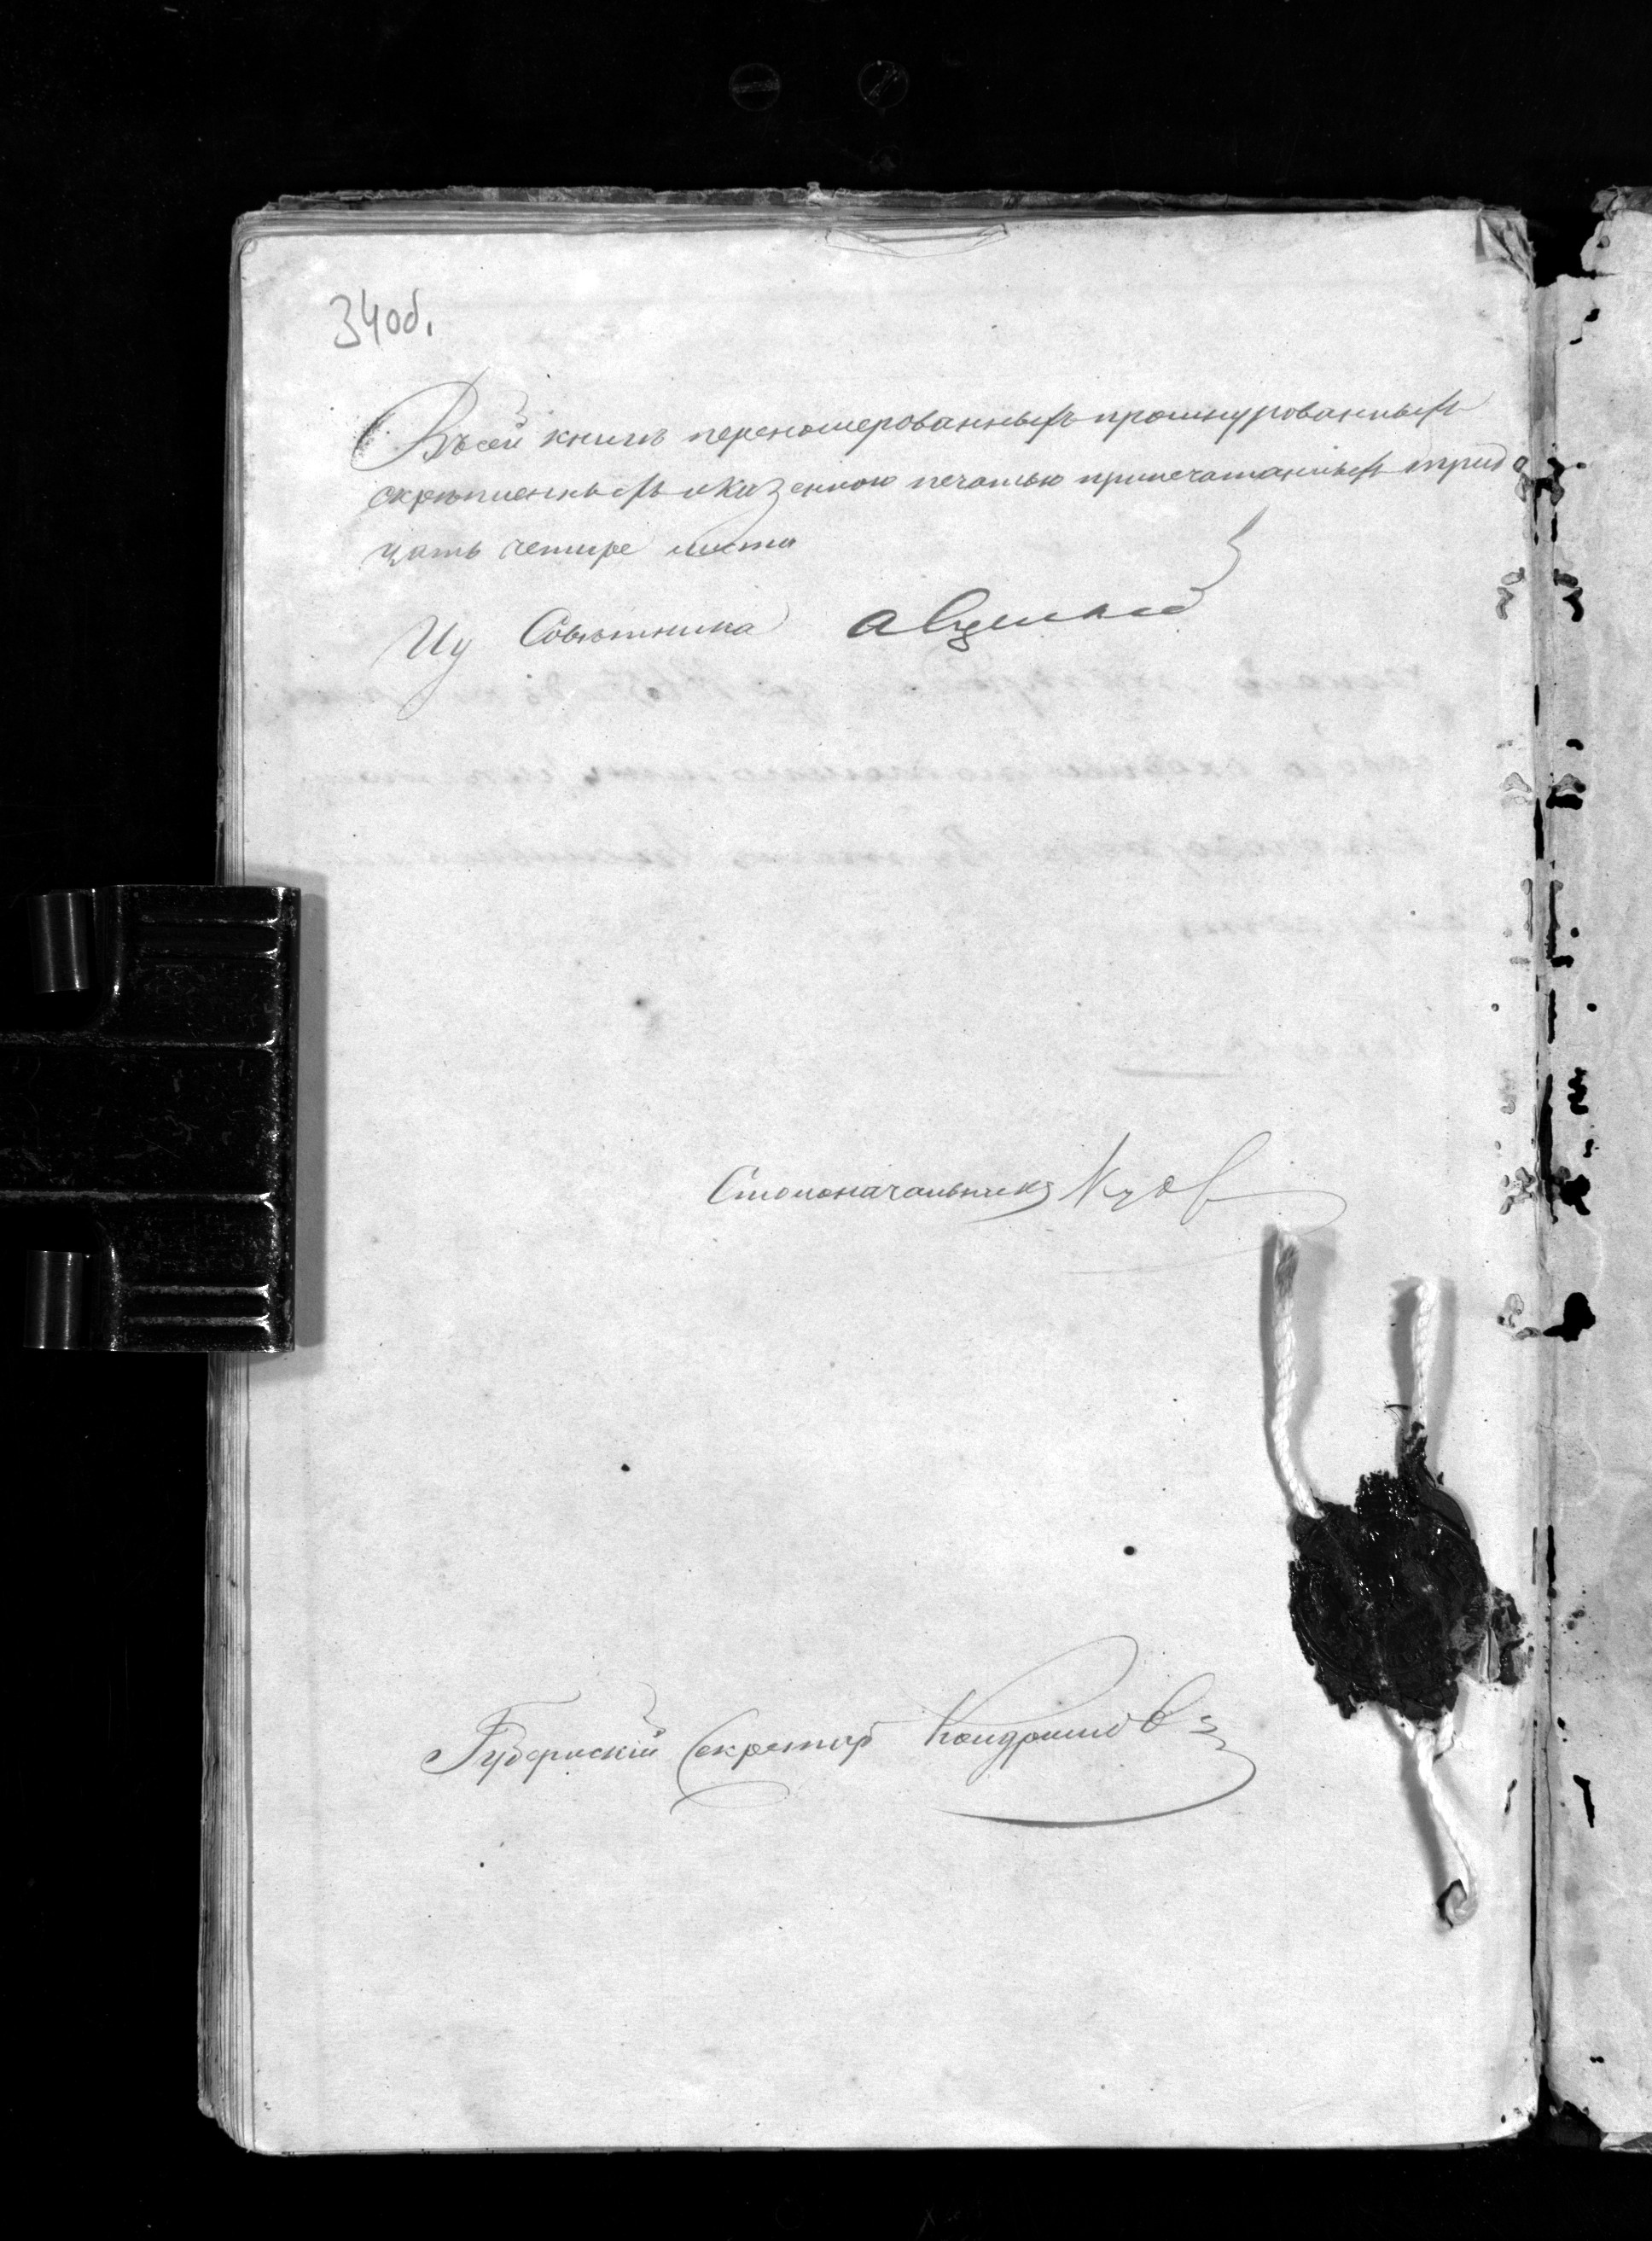 34об.
Въ сей книгѣ перенумерованныхъ прошнурованныхъ
скрѣпленныхъ и казенною печатью припечатанныхъ трид
цать четыре листа
Советника
Столоначальникъ
Губернскій Секретарь Кондрашовъ